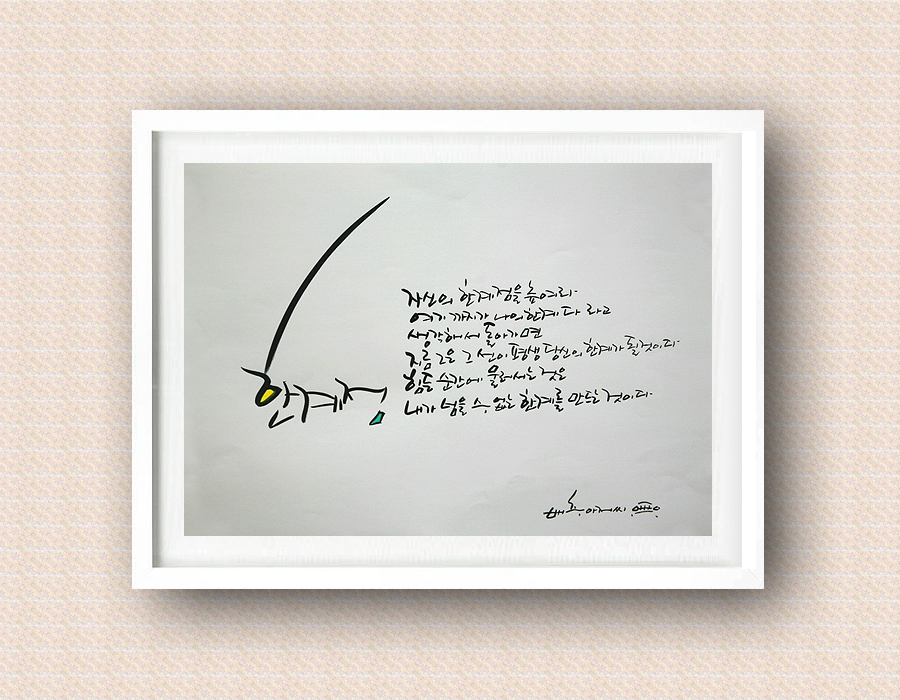 한계점
자신의 한계점을 높여라.
여기 까지가 나의 한계다 라고
생각해서 돌아가면
지금 그은 그 선이 평생 당신의 한계가 될것이다.
힘든 순간에 물러서는 것은
내가 넘을 수 없는 한계를 만드는 것이다.
아저씨